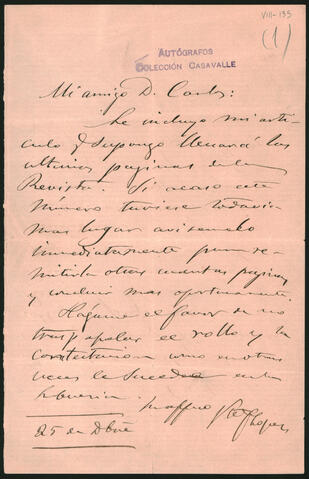 VIII-135
(1)
AUTÓGRAFOS
COLECCIÓN CASAVALLE
Mi amigo D. Carlos:
Le incluyo mi artí-
culo q supongo llenará las
ultimas paginas de la
Revista. Si acaso este
número tuviese todavia
mas lugar avisemelo
inmediatamente para re-
mitirle otras cuantas paginas
y concluir mas oportunamente.
Hágame el favor de no
traspapelar el rollo y la
continuacion como en otras
veces le sucede en la
libreria.
25 de Dbre